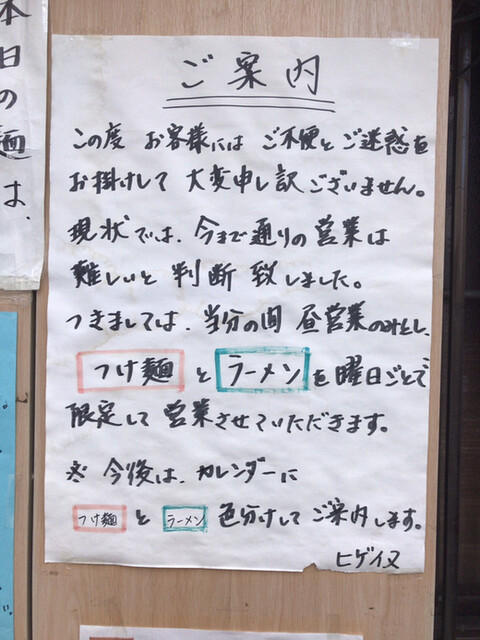 本日の麺は、
ご案内
この度 お客様には ご不便と ご迷惑を
お掛けして 大変申し訳ございません。
現状では、今まで通りの営業は
難しいと 判断 致しました。
つきましては、当分の間 昼営業のみとし、
つけ麺 と ラーメン を 曜日ごとで
限定して 営業させていただきます。
※ 今後は、カレンダーに
つけ麺 と ラーメン 色分けして ご案内します。
ヒゲイヌ